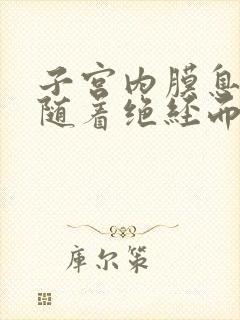 子宫内膜息
随着绝经而
库尔策